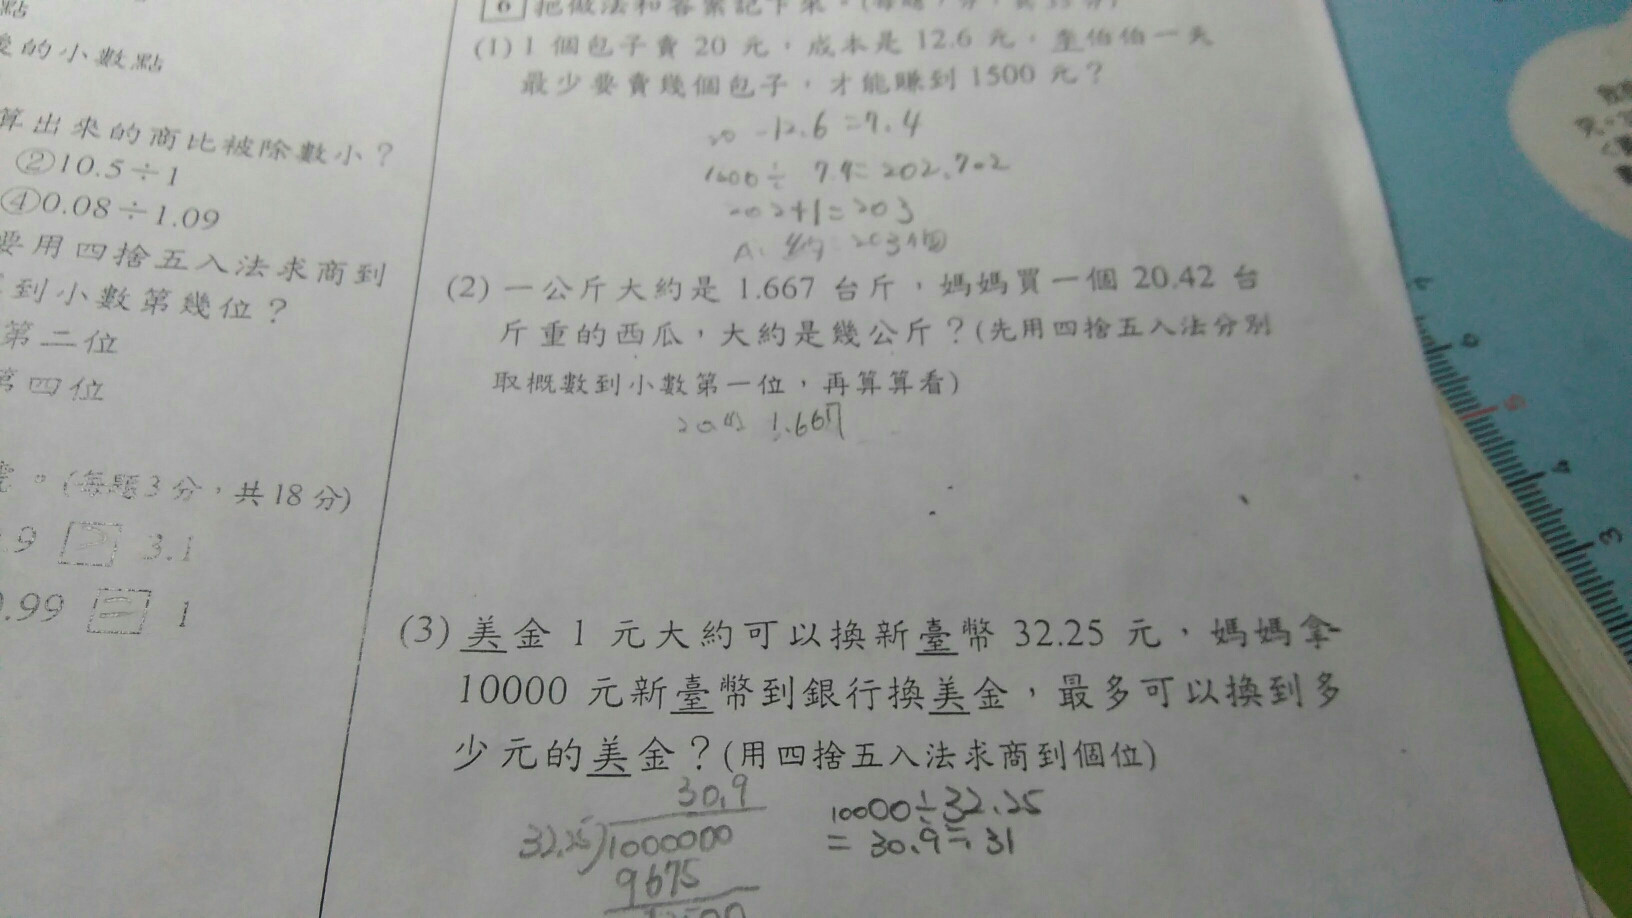 點
的小數點
算出來的商比被除數小？
②10.5÷1
④0.08÷1.09
要用四捨五入法求商到
到小數第幾位？
第二位
第四位
。(每題3分，共18分)
.9 3.1
.99 = 1
6 把做法和答案記下來。
(1) 1 個包子賣 20 元，成本是 12.6 元，李伯伯一天
最少要賣幾個包子，才能賺到 1500 元？
20 -12.6 =7.4
1500÷ 7.4= 202.702
202+1=203
A: 約 203個
(2) 一公斤大約是 1.667 台斤，媽媽買一個 20.42 台
斤重的西瓜，大約是幾公斤？(先用四捨五入法分別
取概數到小數第一位，再算算看)
1.667
(3) 美金 1 元大約可以換新臺幣 32.25 元，媽媽拿
10000 元新臺幣到銀行換美金，最多可以換到多
少元的美金？(用四捨五入法求商到個位)
30.9
32.25)1000000
9675
10000÷32.25
= 30.9≒31